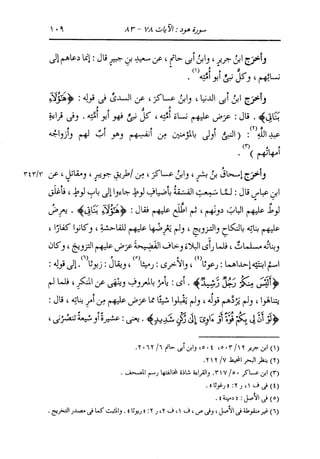 سورة هود : الآيات ٧٨ - ٨٣
١٠٩
وأخرج ابنُ جريرٍ ، وابنُ أبي حاتمٍ ، عن سعيدِ بنِ جبيرٍ قال : إنما دعاهم إلى
نسائِهم ، وكلُّ نبيٍّ أبو أُمَّتِه(١) .
وأخرج ابنُ أبي الدنيا ، وابنُ عساكرَ ، عن السديِّ في قولِه : ﴿هَؤُلَاءِ
بَنَاتِي﴾ . قال : عرَض عليهم نساءَ أُمَّتِه ، كلُّ نبيٍّ فهو أبو أُمَّتِه . وفي قراءةِ
عبدِ اللهِ(٢) : (النبيُّ أولى بالمؤمنين من أنفسِهم وهو أبٌ لهم وأزواجُه
أمهاتُهم )(٣) .
وأخرج إسحاقُ بنُ بشرٍ ، وابنُ عساكرَ ، من طريقِ جويبرٍ ، ومقاتلٍ ، عن
٣٤٣/٣
ابنِ عباسٍ قال : لمَّا سمِعت الفسقةُ بأضيافِ لوطٍ جاءوا إلى بابِ لوطٍ ، فأغلَق
لوطٌ عليهم البابَ دونَهم ، ثم اطَّلع عليهم فقال : ﴿هَؤُلَاءِ بَنَاتِي﴾ . يعرِضُ
عليهم بناتِه بالنكاحِ والتزويجِ ، ولم يعرِضْها عليهم للفاحشةِ ، وكانوا كفارًا ،
وبناتُه مسلماتٌ ، فلما رأى البلاءَ وخاف الفضيحةَ عرَض عليهم التزويجَ ، وكان
اسمُ ابنتَيْه إحداهما : رعوثا(٤) ، والأخرى : رميثا(٥) ، ويقالُ : زبوثا(٦) . إلى قولِه :
﴿أَلَيْسَ مِنكُمْ رَجُلٌ رَّشِيدٌ﴾ . أي : يأمُرُ بالمعروفِ وينهى عن المنكرِ ، فلما لم
يتناهَوْا ، ولم يرُدَّهم قولُه ، ولم يقبَلوا شيئًا مما عرَض عليهم من أمرِ بناتِه ، قال :
﴿لَوْ أَنَّ لِي بِكُمْ قُوَّةً أَوْ ءَاوِي إِلَى رُكْنٍ شَدِيدٍ﴾ . يعني : عشيرةً أو شيعةً تنصُرُني ،
(١) ابن جرير ١٢/ ٥٠٣، ٥٠٤، وابن أبي حاتم ٦/ ٢٠٦٢.
(٢) ينظر البحر المحيط ٧/ ٢١٢.
(٣) ابن عساكر ٥٠/ ٣١٧. والقراءة شاذة لمخالفتها رسم المصحف .
(٤) في ف ١، ر ٢: « رغوثا » .
(٥) في الأصل : « دميثة » .
(٦) غير منقوطة في الأصل ، وفي ص ، ف ١، ف ٢، ر ٢: « ربوثا » . والمثبت كما في مصدر التخريج .